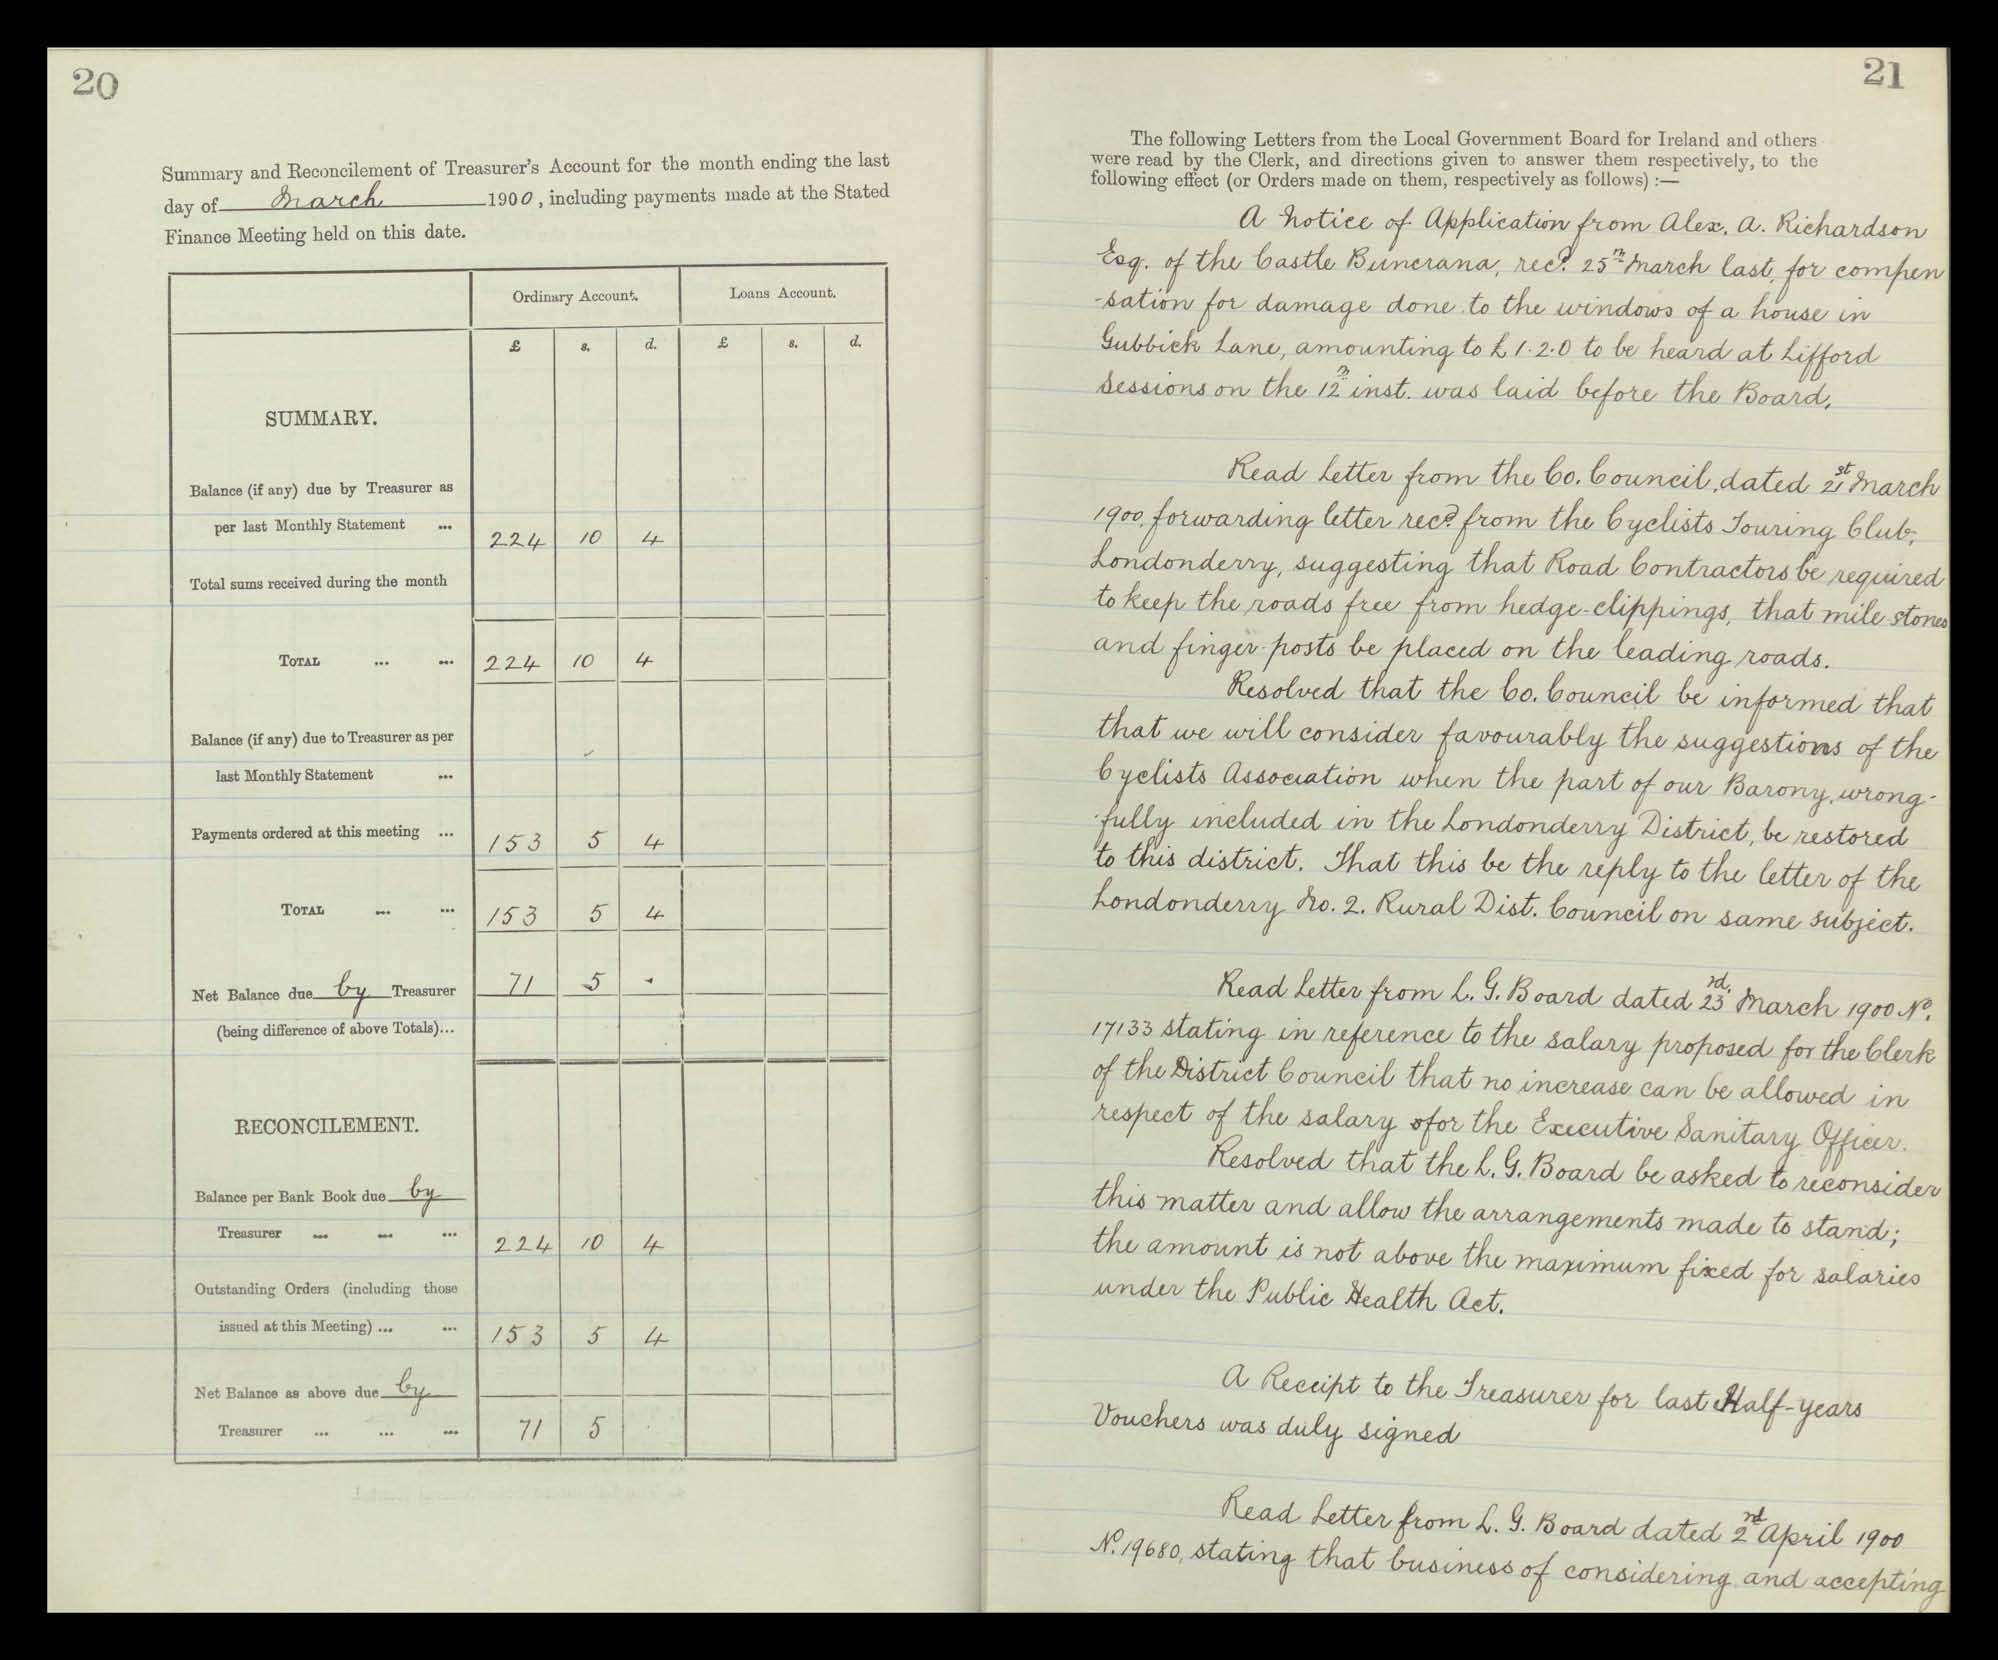 20
Summary and Reconcilement of Treasurer's Account for the month ending the last
day of March 1900, including payments made at the Stated
Finance Meeting held on this date.
Ordinary Account. Loans Account.
£ s. d. £ s. d.
SUMMARY.
Balance (if any) due by Treasurer as
per last Monthly Statement ... 224 10 4
Total sums received during the month
TOTAL ... ... 224 10 4
Balance (if any) due to Treasurer as per
last Monthly Statement ...
Payments ordered at this meeting ... 153 5 4
TOTAL ... ... 153 5 4
Net Balance due by Treasurer 71 5 -
(being difference of above Totals)...
RECONCILEMENT.
Balance per Bank Book due by
Treasurer ... ... ... 224 10 4
Outstanding Orders (including those
issued at this Meeting) ... ... 153 5 4
Net Balance as above due by
Treasurer ... ... ... 71 5
21
The following Letters from the Local Government Board for Ireland and others
were read by the Clerk, and directions given to answer them respectively, to the
following effect (or Orders made on them, respectively as follows) :—
A Notice of Application from Alex. A. Richardson
Esq. of the Castle Buncrana, recd. 25th March last, for compen
-sation for damage done to the windows of a house in
Gubbick Lane, amounting to £1.2.0 to be heard at Lifford
Sessions on the 12th inst. was laid before the Board.
Read Letter from the Co. Council, dated 21st March
1900, forwarding letter recd. from the Cyclists Touring Club,
Londonderry, suggesting that Road Contractors be required
to keep the roads free from hedge-clippings, that mile-stones
and finger-posts be placed on the leading roads.
Resolved that the Co. Council be informed that
that we will consider favourably the suggestions of the
Cyclists Association when the part of our Barony, wrong-
-fully included in the Londonderry District, be restored
to this district. That this be the reply to the letter of the
Londonderry No. 2. Rural Dist. Council on same subject.
Read Letter from L. G. Board dated 23rd. March 1900 No.
17133 stating in reference to the salary proposed for the Clerk
of the District Council that no increase can be allowed in
respect of the salary ofor the Executive Sanitary Officer.
Resolved that the L. G. Board be asked to reconsider
this matter and allow the arrangements made to stand;
the amount is not above the maximum fixed for salaries
under the Public Health Act.
A Receipt to the Treasurer for last Half-years
Vouchers was duly signed
Read Letter from L. G. Board dated 2nd April 1900
No. 19680, stating that business of considering and accepting